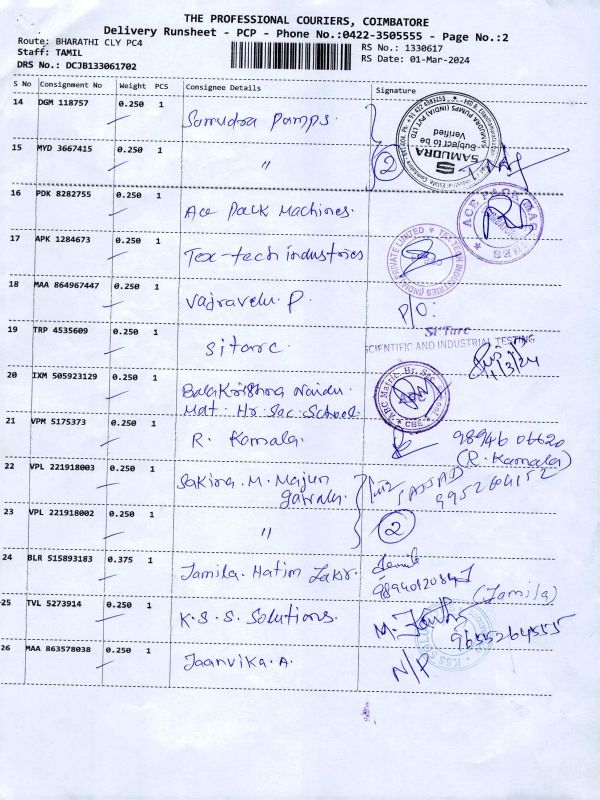 THE PROFESSIONAL COURIERS, COIMBATORE
Delivery Runsheet - PCP - Phone No.:0422-3505555 - Page No.:2
Route: BHARATHI CLY PC4
RS No.: 1330617
Staff: TAMIL
RS Date: 01-Mar-2024
DRS No.: DCJB133061702
S No Consignment No Weight PCS Consignee Details Signature
14 DGM 118757 0.250 1 Samudra Pumps.
SAMUDRA PUMPS (INDIA) PVT LTD
SAMUDRA
Subject to be
Verified
15 MYD 3667415 0.250 1 "
2
16 PDK 8282755 0.250 1 Ace Pack Machines.
ACE PACK
17 APK 1284673 0.250 1 Tex-tech industries
TEX TECH INDUSTRIES (INDIA) PRIVATE LIMITED
18 MAA 864967447 0.250 1 Vajravelu. P. P/O:
19 TRP 4535609 0.250 1 Sitarc.
Si'Tarc
SCIENTIFIC AND INDUSTRIAL TESTING
1/3/24
20 IXM 505923129 0.250 1 Balakrishna Naidu.
Mat. Hr Sec School.
ABC Matric. Hr. Sec. School
CBE
21 VPM 5175373 0.250 1 R. Kamala. 98946 06620
(R. Kamala)
22 VPL 221918003 0.250 1 Sakina. M. Majun
SAJJAD
9952604152
23 VPL 221918002 0.250 1 "
2
24 BLR 515893183 0.375 1 Jamila. Hatim Zakir.
(Jamila)
25 TVL 5273914 0.250 1 K. S. S. Solutions.
26 MAA 863578038 0.250 1 Jaanvika. A. N/P